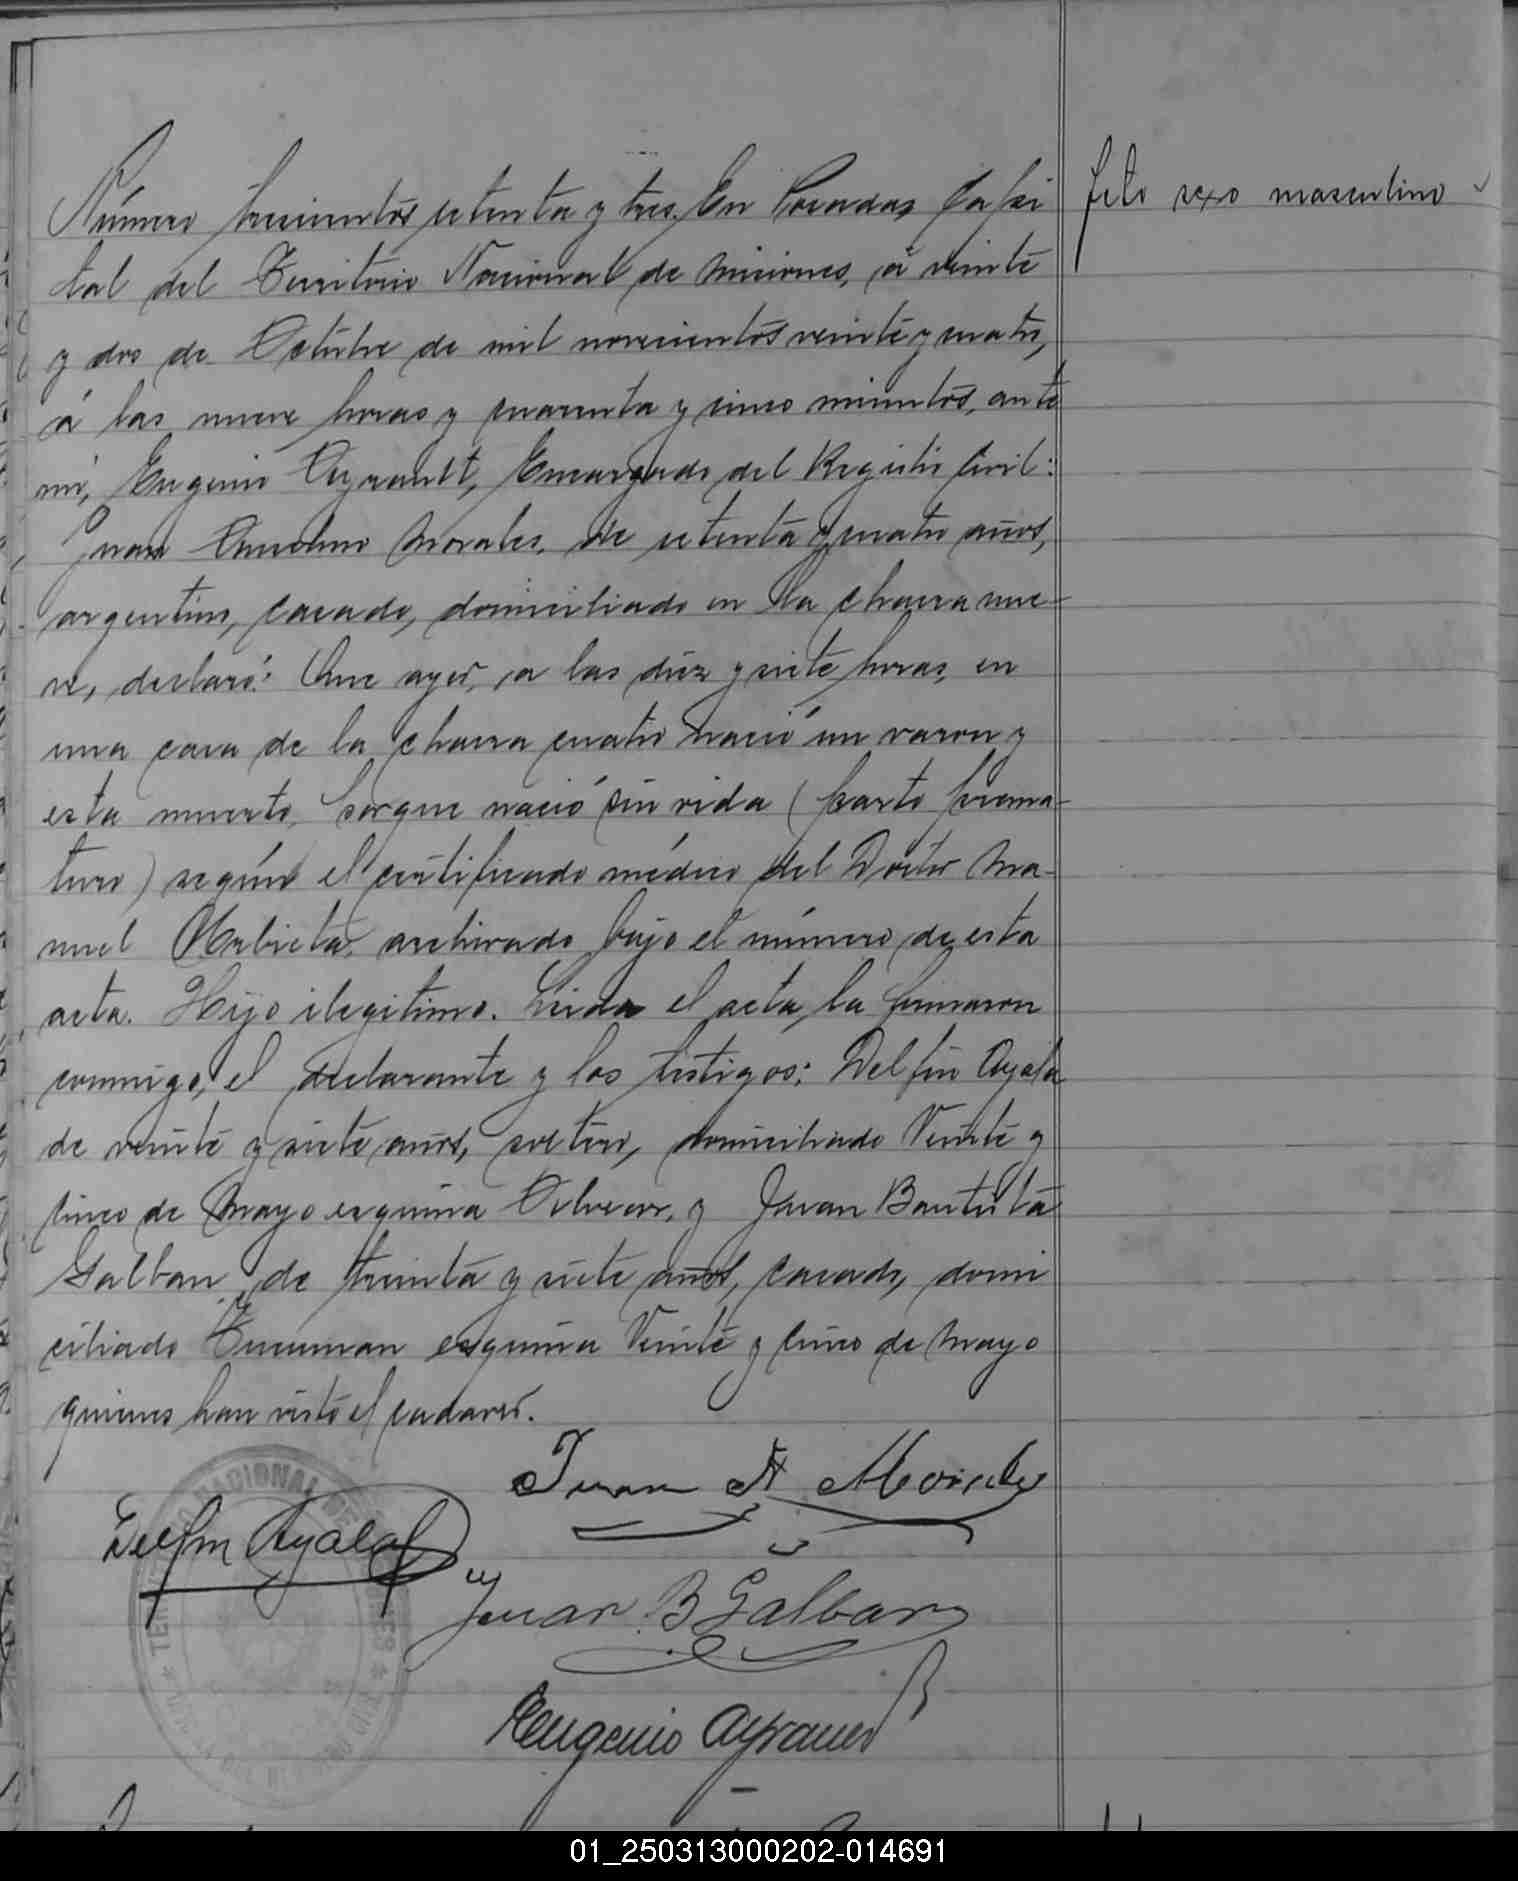 Número trescientos setenta y tres. En Posadas Capi
tal del Territorio Nacional de Misiones, á veinte
y dos de Octubre de mil novecientos veinte y cuatro,
á las nueve horas y cuarenta y cinco minutos, ante
mi, Eugenio Ayrault, Encargado del Registro Civil:
Juan Anselmo Morales, de setenta y cuatro años,
argentino, casado, domiciliado en la chacra nue-
ve, declaró: Que ayer, a las diez y siete horas, en
una casa de la chacra cuatro nació un varon y
esta muerto, porque nació sin vida (parto prema-
turo) según el certificado médico del Doctor Ma-
nuel archivado bajo el número de esta
acta. Hijo ilegitimo. Leida el acta, la firmaron
conmigo, el declarante y los testigos: Delfin Ayala
de veinte y siete años, soltero, domiciliado Veinte y
cinco de Mayo esquina y Juan Bautista
Galban, de treinta y siete años, casado, domi
ciliado Tucuman esquina Veinte y cinco de Mayo
quienes han visto el cadaver.
feto sexo masculino
Juan A Morales
Delfin Ayala
Juan B Galban
Eugenio Ayrault
01_250313000202-014691